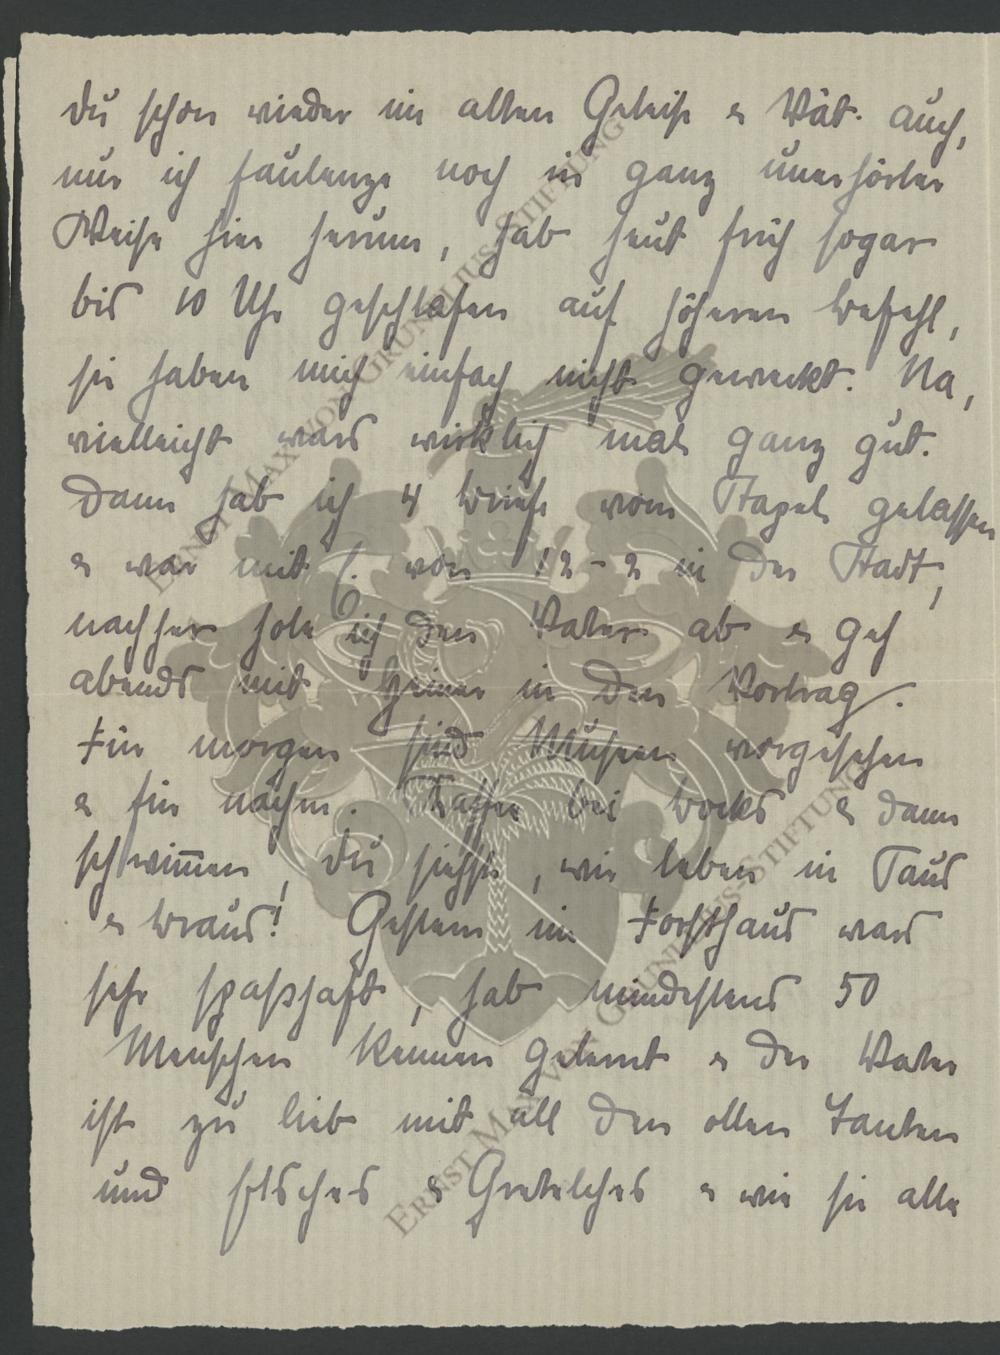 Du schon wieder im alten Geleise & Vät. auch,
nur ich faulenze noch in ganz unerhörter
Weise hier herum, hab heut früh sogar
bis 10 Uhr geschlafen auf höheren Befehl,
sie haben mich einfach nicht geweckt. Na,
vielleicht wars wirklich mal ganz gut.
Dann hab ich 4 Briefe vom Stapel gelassen
& war mit von 12-2 in der Stadt,
nachher hole ich den Vater ab & geh
abends mit in den Vortrag.
Für morgen sind Museen vorgesehen
& für nachm. Kaffee bei Bocks & dann
schwim̅en, Du siehst, wir leben in Saus
& Braus! Gestern im Forsthaus wars
sehr spaßhaft, hab mindestens 50
Menschen kennen gelernt & der Vater
ist zu lieb mit all den ollen Tanten
und & Gretelches & wie sie alle
ERNST MAX VON GRUNELIUS-STIFTUNG
ERNST MAX VON GRUNELIUS-STIFTUNG